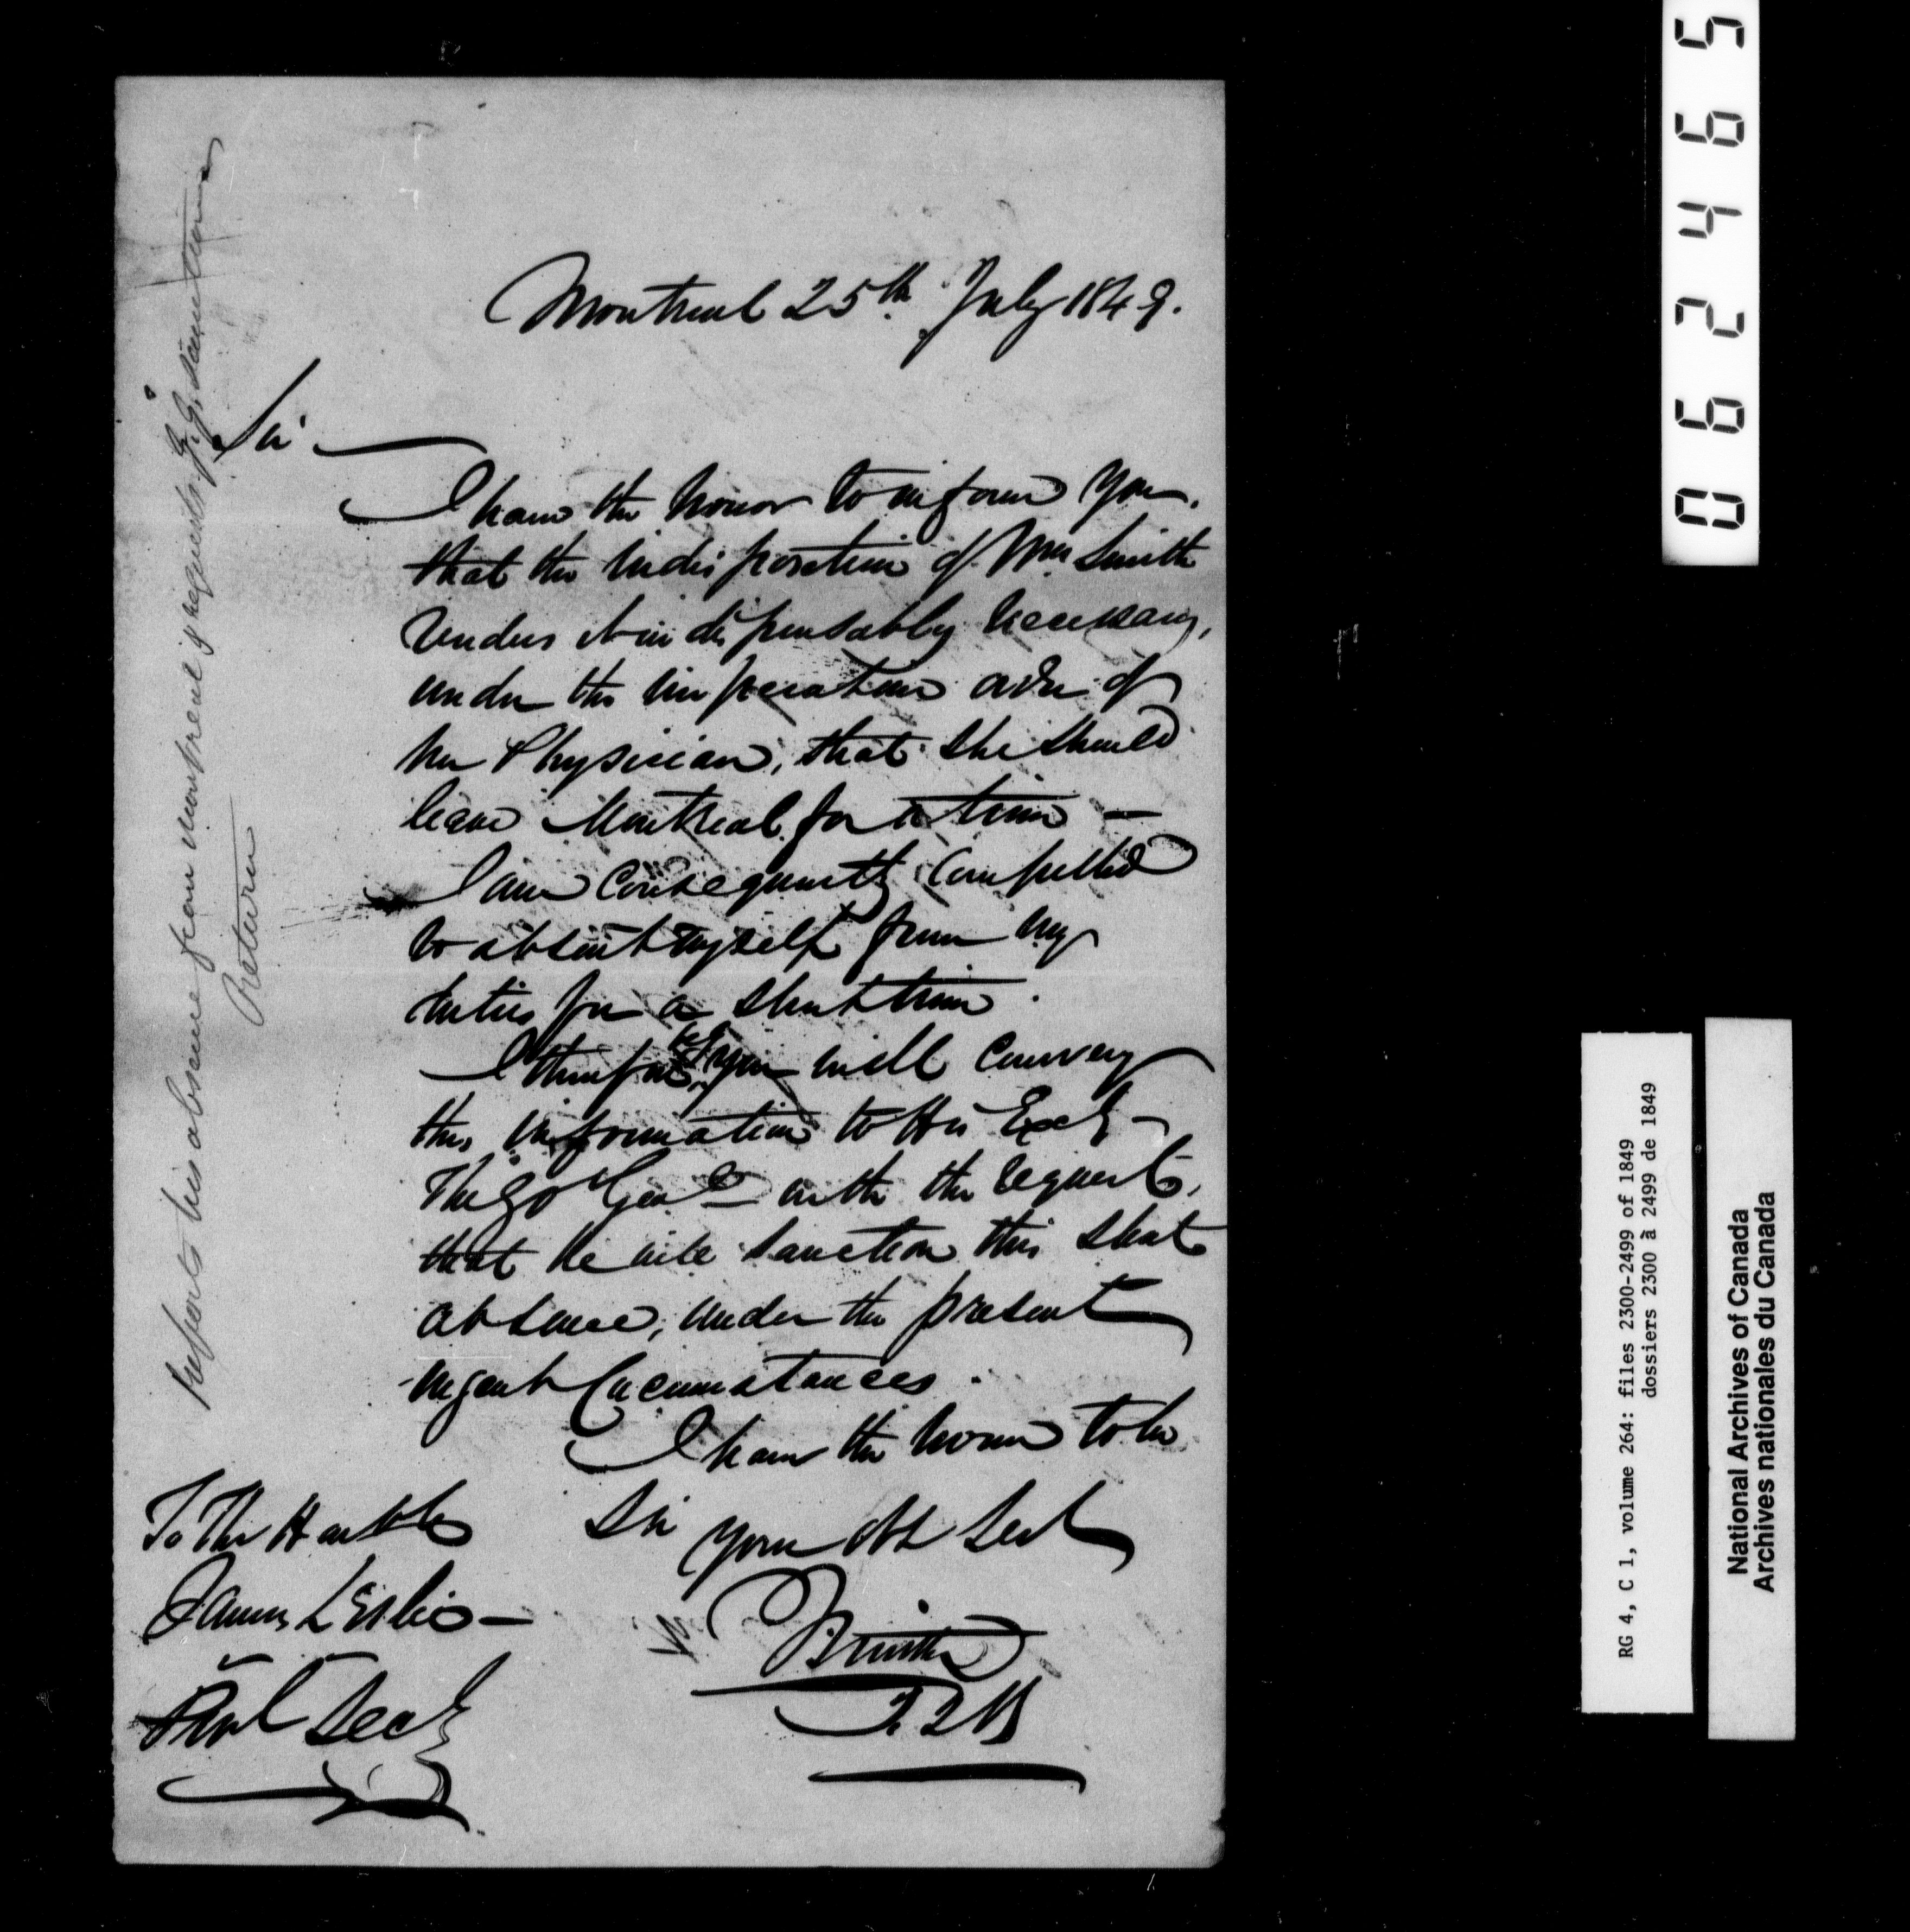 Montreal 25th July 1849.
Sir
I have the honor to inform you,
that the indisposition of Mrs Smith
renders it indispensably necessary,
under the imperative order of
her Physician, that she should
leave Montreal for a time —
I am consequently compelled
to absent myself from my
duties for a short time.
I therefore beg you will convey
this information to His Excy
The Gov Genl with the request,
that he will sanction this short
absence, under the present
urgent Circumstances.
I have the honor to be
Sir
your obt Servt
Smith
J.Q.B
To The Honble
James Leslie —
Provl Secy
Reports his absence from Montreal & requests G.G. sanction
Return
062465
RG 4, C 1, volume 264: files 2300-2499 of 1849
dossiers 2300 à 2499 de 1849
National Archives of Canada
Archives nationales du Canada